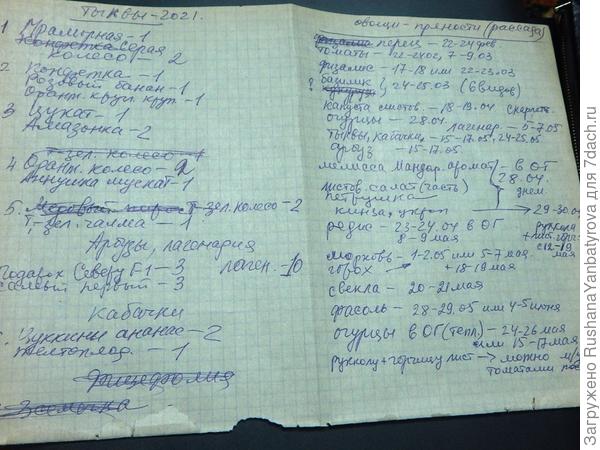 Тыквы-2021.
1 Мраморная-1
серая
Колесо-2
2 Конфетка-1
Розовый банан-1
Оранж. кругл. круп.-1
3 Цукат-1
Амазонка-2
Т-зел. колесо-1
4 Оранж. колесо-2
Аннушка мускат-1
5. Т-зел. колесо-2
Т-зел. чалма-1
Арбузы, лагенария
Подарок Северу F1-3
лаген.-10
самый первый-3
Кабачки
Цуккини ананас-2
желтоплод.-1
овощи-пряности (рассада)
перец-22-24 фев
томаты-22-2802, 7-9.03
физалис-17-18 или 22-23.03
? базилик } 24-25.03 (6 видов)
капуста листов.-18-19.04
огурцы-28.04.
лагенар.-5-7.05
тыквы, кабачки-15-17.05, 24-25.05
арбуз-15-17.05.
мелисса Мандар. аромат
листов. салат (часть)
петрушка
кинза, укроп
} в ОГ
28.04.
днем
29-30.04
редис-23-24.04 в ОГ
8-9 мая
морковь-1-2.05 или 5-7 мая.
горох + 18-19 мая
свекла-20-21 мая
фасоль-28-29.05 или 4-5 июня
огурцы в ОГ (тепл.)-24-26 мая
или 15-17 мая
рукколу+горчицу лист → можно м/у
томатами
Загружено RushanaYanbatyrova для 7dach.ru